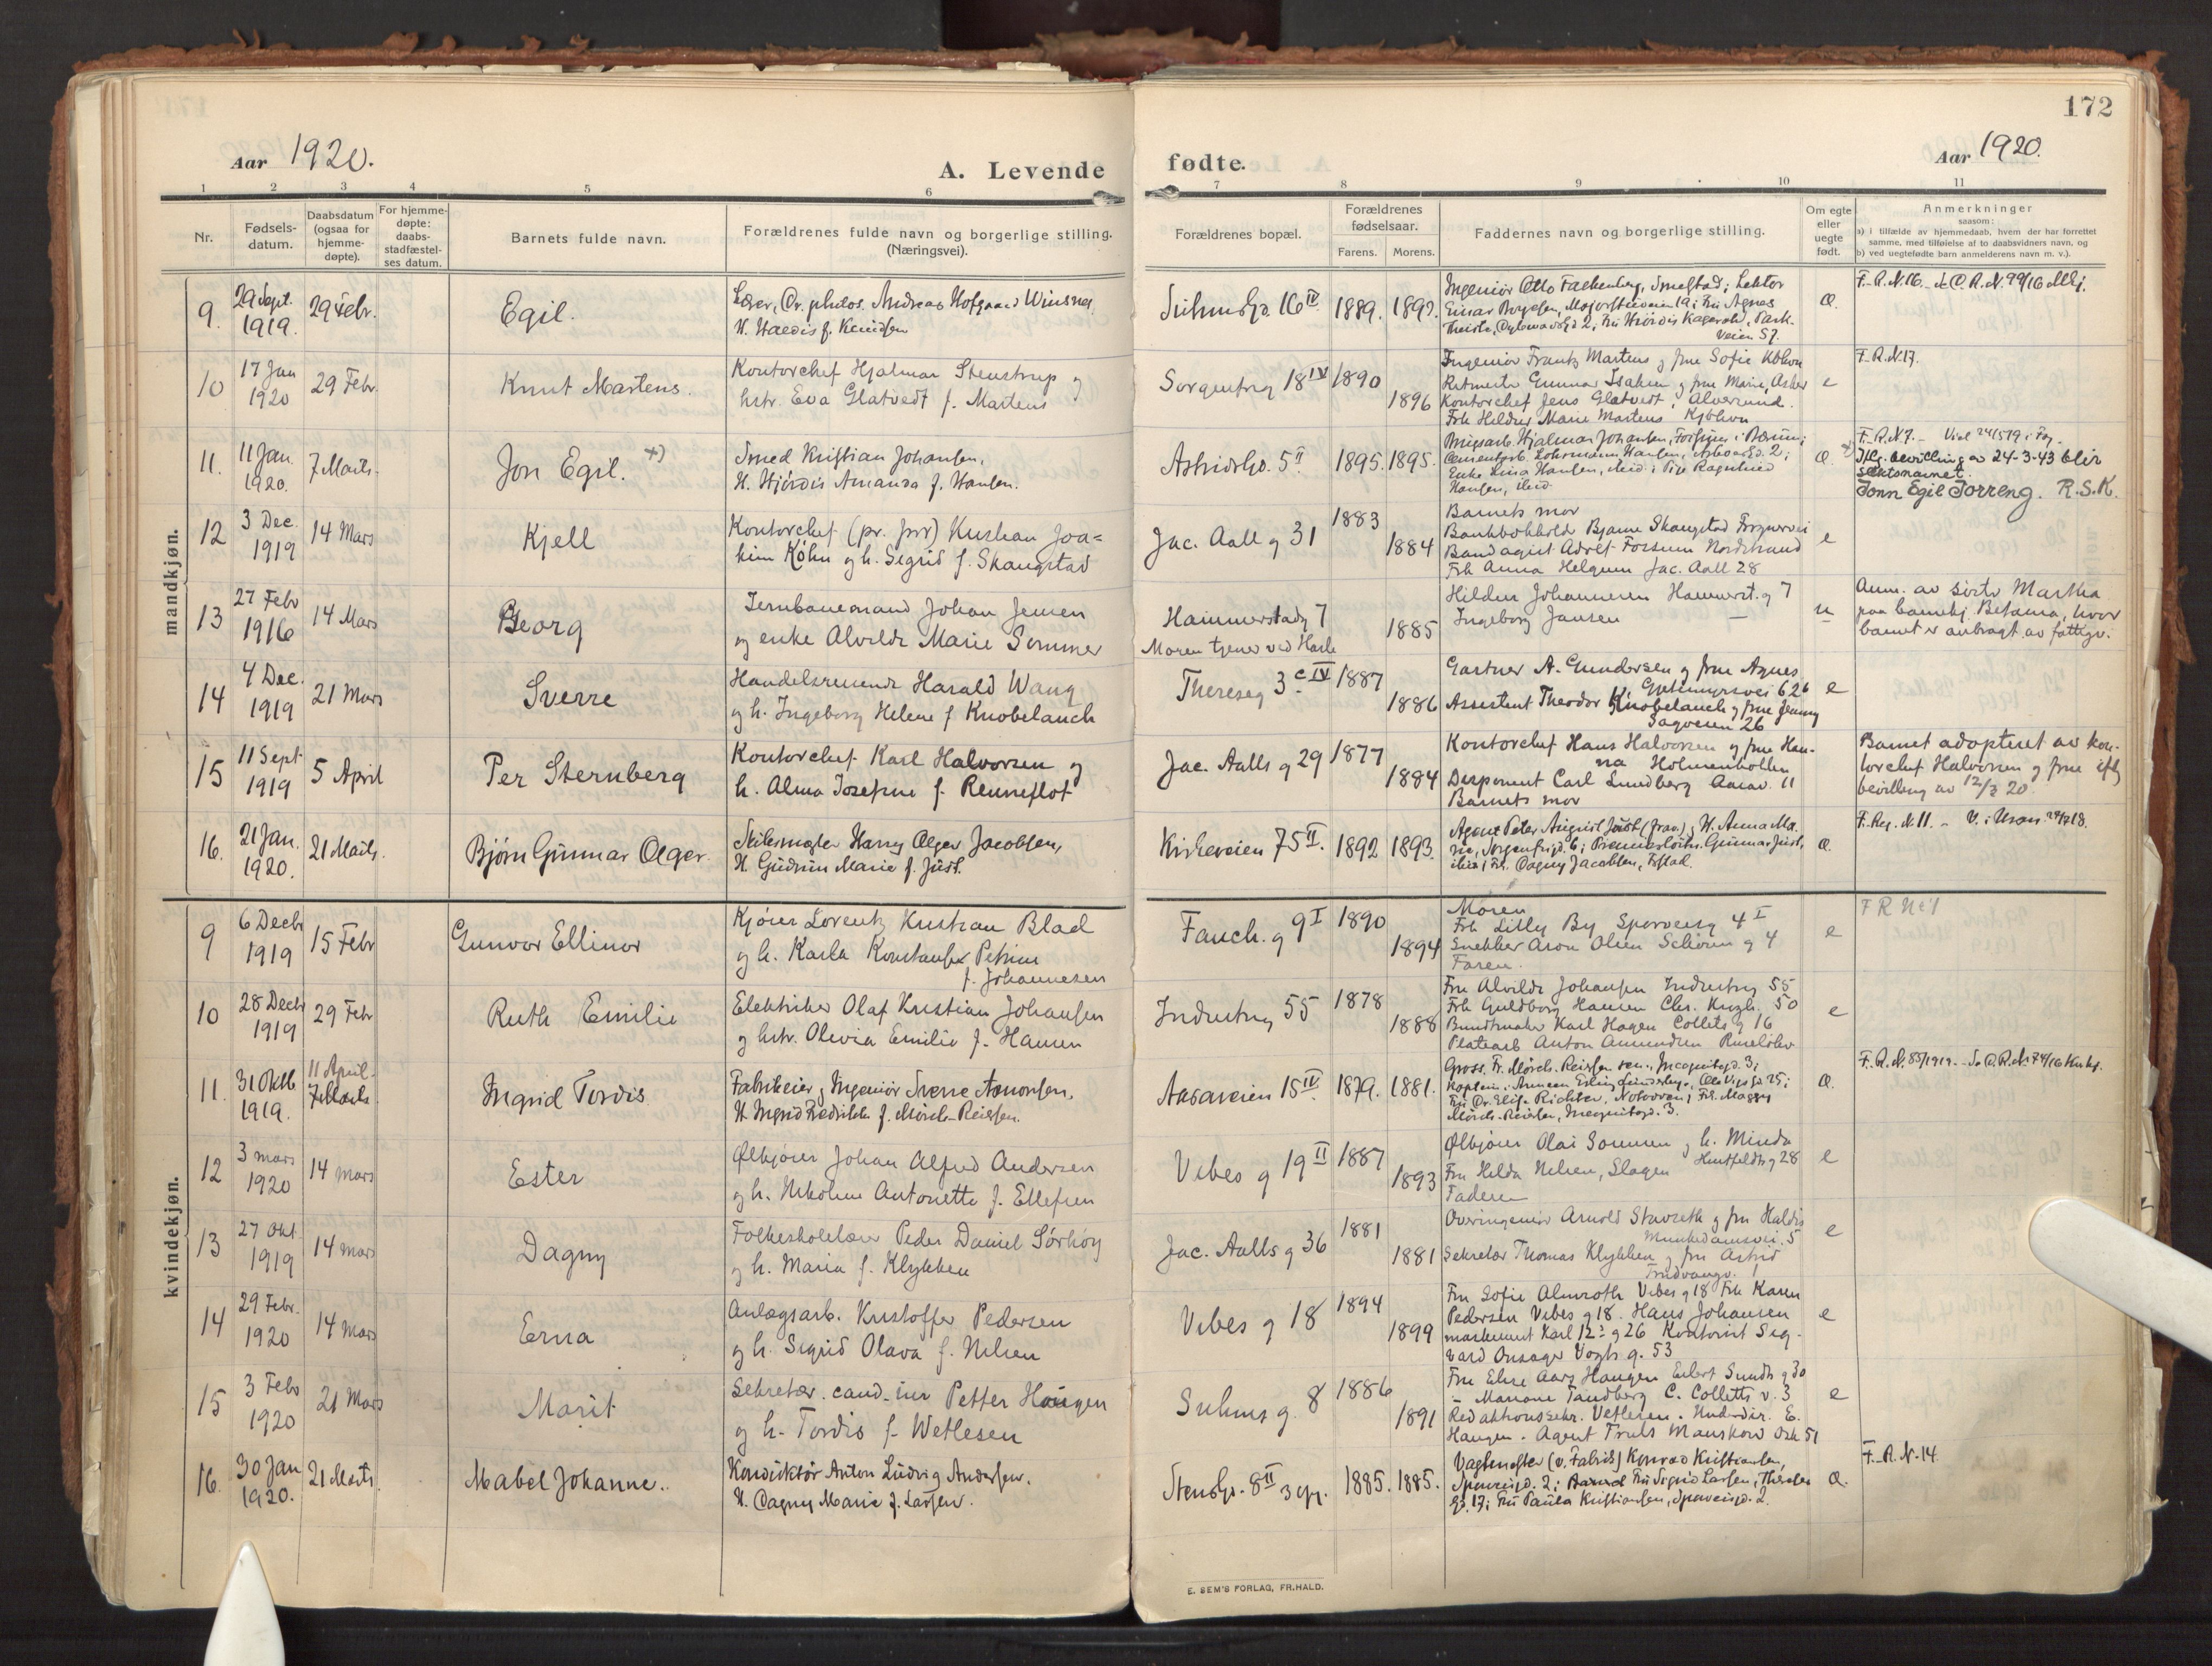 172
Aar 1920.
A. Levende
fødte.
Aar 1920.
1 2 3 4 5 6 7 8 9 10 11
Nr.
Fødsels-
datum.
Daabsdatum
(ogsaa for
hjemme-
døpte).
For hjemme-
døpte:
daabs-
stadfæstel-
ses datum.
Barnets fulde navn.
Forældrenes fulde navn og borgerlige stilling.
(Næringsvei).
Forældrenes bopæl.
Forældrenes
fødselsaar.
Farens. Morens.
Faddernes navn og borgerlige stilling.
Om egte
eller
uegte
født.
Anmerkninger
saasom:
a) i tilfælde av hjemmedaab, hvem der har forrettet
samme, med tilføielse af to daabsvidners navn, og
b) ved uegtefødte barn anmelderens navn m. v.).
mandkjøn.
9. 29 Sept. 1919. 29 Febr.
Egil.
Lærer, Dr. philos. Andreas Hofgaard Winsnes,
16 IV 1889. 1893.
Ingeniør Otto
F.R.N. 16.
10 17 Jan 1920 29 Febr.
Knut Martens.
Kontorchef Hjalmar Stenstrup og
hstr. Eva Glatvedt f. Martens
Sorgenfrig 18 IV 1890
1896
Ingeniør Frantz Martens og frue Sofie Kbhvn
Ritmester Gunnar Isaksen og frue Marie, Asker
Kontorchef Jens Glatvedt, Alversund.
Frk Hildur Marie Martens Kjøbhvn
e
F.R.N. 17.
11. 11 Jan. 1920. 7 Marts.
Jon Egil. +)
Smed Kristian Johansen,
H. Hjørdis Amanda f. Hansen.
Astridsgd. 5 II 1895. 1895.
Enke Lina Hansen, ibid; Pige Ragnhild
Hansen, ibid.
F.R.N. 7.
Jflg. bevilling av 24-3-43 blir
slektsnavnet
Jonn Egil Torreng. R.S.K.
12 3 Dec. 1919 14 Mars
Kjell
Kontorchef (pr. prv) Kristian Joa=
kim Köhn og h. Sigrid f. Skaugstad
Jac. Aall g 31
1883
1884
Barnets mor
Bankbokholder Bjarne Skaugstad Frognervei
Bandagist Adolf Fossum Nordstrand
Frk Anna Helgum Jac. Aall 28
e
13 27 Febr 1916 14 Mars
Georg
Jernbanemand Johan Jensen
og enke Alvilde Marie Sommer
Hammerstadg 7
Moren tjener ved Hasle
1885
Hildur Johannesen Hammerst. g 7
Ingeborg Jansen —
u
Anm. av søster Martha
paa barnehj. Betania, hvor
barnet er anbragt av fattigv.
14 4 Dec. 1919 21 Mars
Sverre
Handelsreisende Harald Wang
og h. Ingeborg Helene f Knobelauch
Thereseg 3 c IV 1887
1886
Gartner A. Gundersen og frue Agnes
Gjetemyrsvei 62 b
Assistent Theodor Knobelauch og frue Jenny
Sagveien 26
e
15 11 Sept 1919 5 April
Per Sternberg
Kontorchef Karl Halvorsen og
h. Alma Josefine f. Renneflot
Jac. Aalls g 29 1877
1884
Kontorchef Hans Halvorsen og frue Han-
na Holmenkollen
Disponent Carl Lundberg 11
Barnets mor
Barnet adopteret av kon-
torchef Halvorsen og frue iflg
bevilling av 12/3 20
16. 21 Jan. 1920. 21 Marts.
Bjørn Gunnar Olger.
Skibsmægler Harry Olger Jacobsen,
H. Gudrun Marie f. Just.
Kirkeveien 75 II. 1892 1893.
Agent Peter August Just (frav.) H. Anna Ma-
rie, Sorgenfrigd. 6; Premierløitn. Gunnar Just,
ibid; Frk. Dagny Jacobsen,
F.Reg. N. 11.
kvindekjøn.
9 6 Decbr 1919 15 Febr
Gunvor Ellinor
Kjører Lorentz Kristian Blad
og h. Karla Konstanse Petrine
f. Johannesen
Fauch. g 9 I 1890
1894
Moren
Frk Lilly By Sporveisg 4 I
Snekker Aron Olsen Schøun g 4
Faren.
e
F R No 1
10 28 Decbr 1919 29 Febr
Ruth Emilie
Elektriker Olaf Kristian Johansen
og hstr. Olivia Emilie f. Hansen
Industrig 55 1878
1888
Fru Alvilde Johansen Industrig 55
Frk Guldborg Hansen Chr. Krogh. 50
Bundtmaker Karl Hagen Colletts g 16
Platearb Anton Amundsen
e
11. 31 Oktb. 1919. 11 April. 7 Marts
Ingrid Tordis
Fabrikeier og Ingeniør Sverre Amonsen,
H. Ingrid Fredrikke f. Mørch-Reiersen.
Aasaveien 15 IV. 1879. 1881.
Gross. Fr. Mørch-Reiersen sen., Incognitogd. 3;
Fru Dr. Elise Richter, Notodden; Frk. Maggy
Mørch-Reiersen, Incognitogd. 3.
F.R.N. 85/1919.
12 3 mars 1920 14 mars
Ester
Ølkjører Johan Alfred Andersen
og h. Nikoline Antonette f. Ellefsen
Vibes g 19 II 1887
1893
Ølkjører Olai Sørensen og h. Minda
Huitfeldts g 28
Fru Hilda Nilsen, Slagen
Faderen
e
13 27 Okt. 1919 14 mars
Dagny
Folkeskolelærer Peder Daniel Sörhöy
og h. Maria f. Klykken
Jac. Aalls g 36 1881
1881
Overingeniør Arnold Stavseth og fru Haldis
Munkedamsvei 5
Sekretær Thomas Klykken og fru Astrid
Trudvangv. 1
e
14 29 Febr. 1920 14 Mars
Erna
Anlægsarb. Kristoffer Pedersen
og h. Sigrid Olava f. Nilsen
Vibes g 18 1894
1899
Fru Sofie Almroth Vibes g 18 Frk Karen
Pedersen Vibes g 18. Hans Johansen
maskinist Karl 12 g 26 Kontorist Sig-
vard Onsager Vogts g. 53
e
15 3 Febr 1920 21 Mars
Marit
Sekretær. cand. jur Petter Haugen
og h. Tordis f. Wetlesen
Suhms g. 8 1886
1891
Fru Elise Aars Haugen Eilert Sundts g 30
- Mariane Tandberg C. Colletts v. 3
Redaktionssekr. Vetlesen. Underdir. E.
Haugen. Agent Truls Manskow Osk 51
e
16. 30 Jan 1920. 21 Marts
Mabel Johanne.
Konduktør Anton Ludvig Andersen.
H. Dagny Marie f. Larsen.
Stensgd. 8 II 3 opg. 1885. 1885.
Vagtmester (v. Fabrik) Konrad Kristiansen,
Sporveisgd. 2; Fru Sigrid Larsen, Therese
gd. 17; Fru Paula Kristiansen, Sporveisgd. 2.
F.R.N. 14.
E. SEM'S FORLAG, FR.HALD.